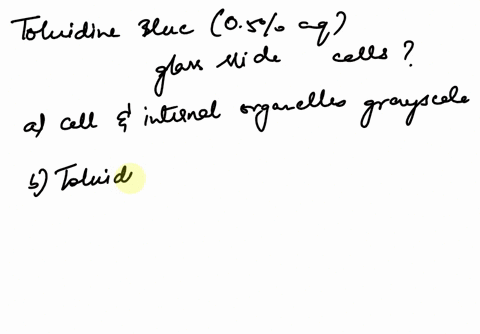 Toluidine Blue (0.5% aq)
glass slide cells ?
a) cell & internal organelles grayscale
b) Toluid